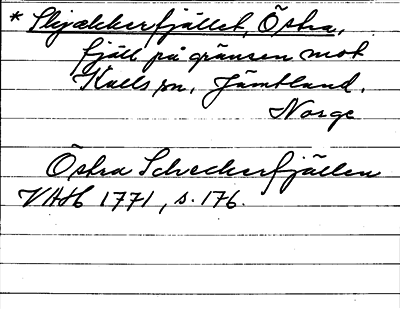 * Skjækkerfjället, Östra,
fjäll på gränsen mot
Kalls sn, Jämtland.
Norge
Östra Scheckerfjällen
VAH 1771, s. 176.